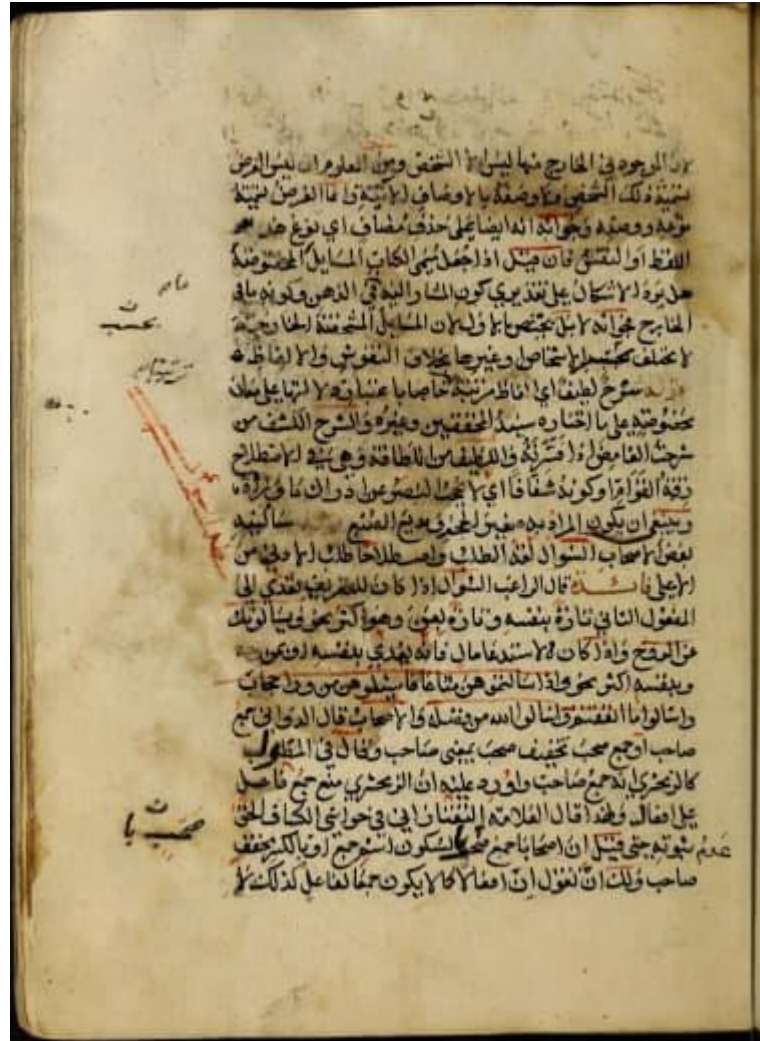 لان الموجود في الخارج منها ليس الا الشخص ومن المعلوم ان ليس الغرض
تسمية ذلك الشخص ولا وصفه بالاوصاف الآتية وانما الغرض تسمية
نوعه ووصفه وجوابه انه ايضا على حذف مضاف اي نوع هذه
اللفظ او النقش فان قيل اذا جعل سمى الكتاب المسايل المخصوصة
هل يرد الاشكال على تقديري كون المشار اليه في الذهن وكونه باقي
الخارج فجوابه لا بل يختص بالاول لان المسايل المتحققة الخارجية
لا يختلف الاشخاص وغيرها بخلاف النقوش والالفاظ
شرح لطيف اي الفاظ مرتبة خاصا باعتبار دلالتها على معان
مخصوصة على ما اختاره سيد المحققين وغيره والشرح الكشف من
شرحت الغامض اذا فسرته واللطيف من اللطافة وهي في الاصطلاح
رقة القوام او كونه شفافا اي لا يحجب البصر عن ادراك ما وراه
وينبغي ان يكون المراد به سالنيه
بعض الاصحاب السوال لغة الطلب واصطلاحا طلب الادنى من
الاعلى فائدة قال الراغب السوال اذا كان للتعريف تعدي الى
المفعول الثاني تارة بنفسه وتارة بعن وهو اكثر نحو ويسألونك
عن الروح واذا كان لاستدعا مال فانه يعدي بنفسه او بمن
وبنفسه اكثر نحو واذا سالتموهن متاعا فاسئلوهن من ورا حجاب
واسالوا ما انفقتم واسالوا الله من فضله والاصحاب قال الدواني جمع
صاحب او جمع صحب تخفيف صحب بمعنى صاحب وقال في المطول
كالزمخشري انه جمع صاحب واورد عليه ان الزمخشري منع جمع فاعل
على افعال ولهذا قال العلامة التفتازاني في حواشي الكشاف الحق
عدم ثبوته حتى قيل ان اصحابا جمع صحب بالسكون اسم جمع او بالكسر مخفف
صاحب ولك ان تقول ان افعالا كما لا يكون جمعا لفاعل كذلك لا
بحسب
صحب با